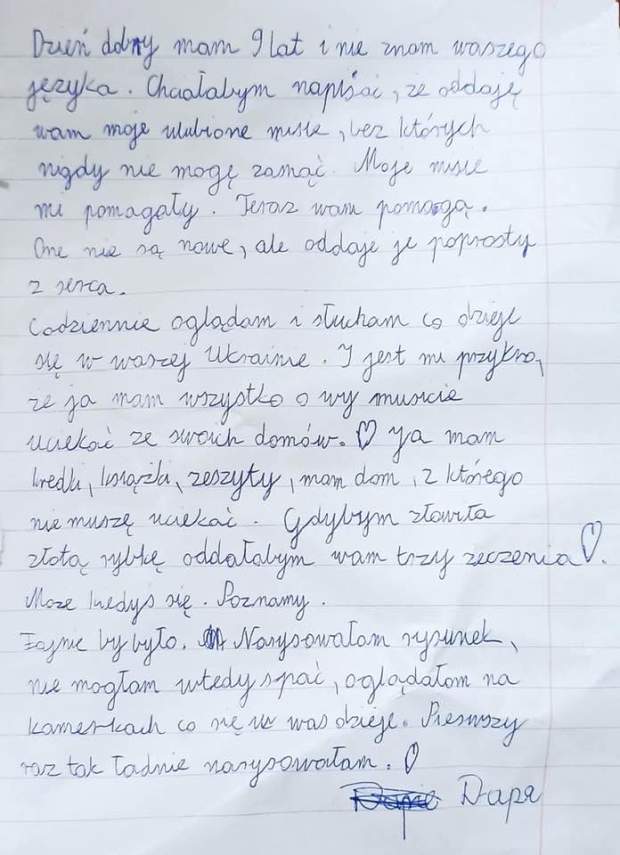 Dzień dobry mam 9 lat i nie znam waszego
języka. Chciałabym napisać, że oddaję
wam moje ulubione misie, bez których
nigdy nie mogę zasnąć. Moje misie
mi pomagały. Teraz wam pomogą.
One nie są nowe, ale oddaje je poprosty
z serca.
Codziennie oglądam i słucham co dzieje
się w waszej Ukrainie. I jest mi przykro,
że ja mam wszystko a wy musicie
uciekać ze swoich domów. ♡ Ja mam
kredki, książki, zeszyty, mam dom, z którego
nie muszę uciekać. Gdybym złowiła
złotą rybkę oddałabym wam trzy zeczenia ♡.
Może kiedyś się. Poznamy.
Fajnie by było. Narysowałam rysunek,
nie mogłam wtedy spać, oglądałam na
kamerkach co się u was dzieje. Pierwszy
raz tak ładnie narysowałam. ♡
Daря